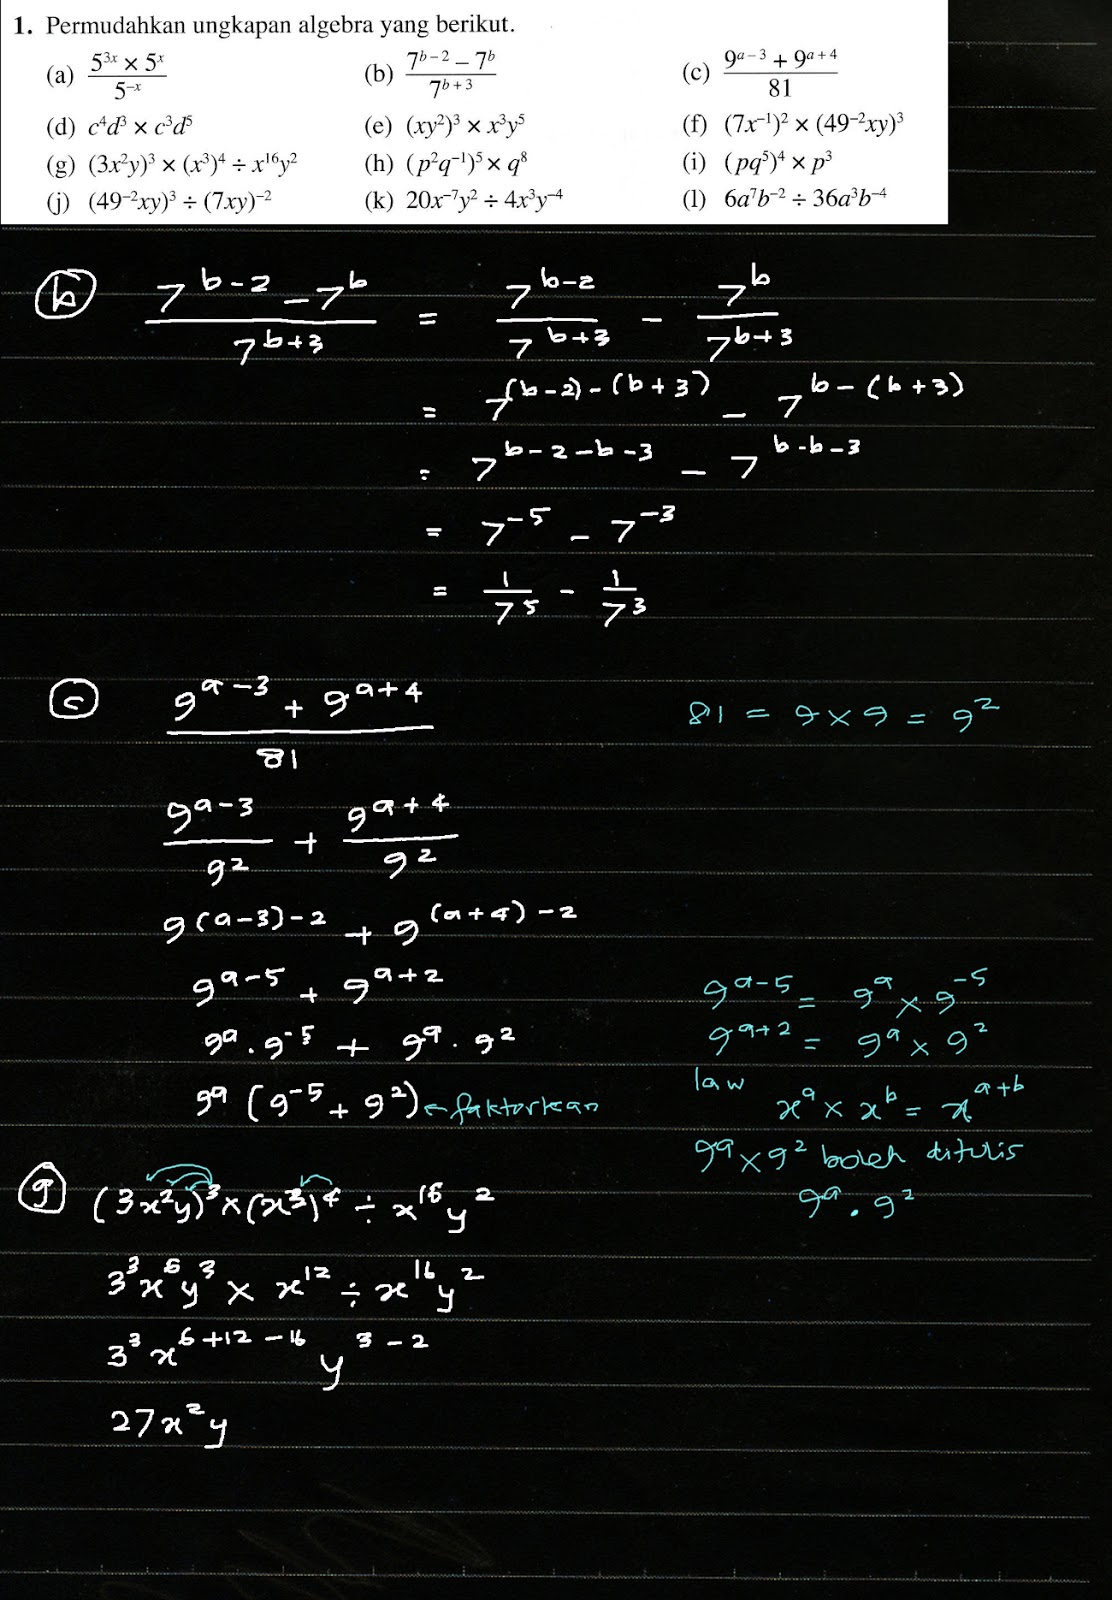 1. Permudahkan ungkapan algebra yang berikut.
(a) (5³ˣ × 5ˣ)/5⁻ˣ (b) (7ᵇ⁻² − 7ᵇ)/7ᵇ⁺³ (c) (9ᵃ⁻³ + 9ᵃ⁺⁴)/81
(d) c⁴d³ × c³d⁵ (e) (xy²)³ × x³y⁵ (f) (7x⁻¹)² × (49⁻²xy)³
(g) (3x²y)³ × (x³)⁴ ÷ x¹⁶y² (h) (p²q⁻¹)⁵ × q⁸ (i) (pq⁵)⁴ × p³
(j) (49⁻²xy)³ ÷ (7xy)⁻² (k) 20x⁻⁷y² ÷ 4x³y⁻⁴ (l) 6a⁷b⁻² ÷ 36a³b⁻⁴
b (7ᵇ⁻² − 7ᵇ)/7ᵇ⁺³ = 7ᵇ⁻²/7ᵇ⁺³ − 7ᵇ/7ᵇ⁺³
= 7⁽ᵇ⁻²⁾⁻⁽ᵇ⁺³⁾ − 7ᵇ⁻⁽ᵇ⁺³⁾
= 7ᵇ⁻²⁻ᵇ⁻³ − 7ᵇ⁻ᵇ⁻³
= 7⁻⁵ − 7⁻³
= 1/7⁵ − 1/7³
c (9ᵃ⁻³ + 9ᵃ⁺⁴)/81
81 = 9 × 9 = 9²
9ᵃ⁻³/9² + 9ᵃ⁺⁴/9²
9⁽ᵃ⁻³⁾⁻² + 9⁽ᵃ⁺⁴⁾⁻²
9ᵃ⁻⁵ + 9ᵃ⁺²
9ᵃ . 9⁻⁵ + 9ᵃ . 9²
9ᵃ (9⁻⁵ + 9²) ← faktorkan
9ᵃ⁻⁵ = 9ᵃ × 9⁻⁵
9ᵃ⁺² = 9ᵃ × 9²
law
xᵃ × xᵇ = xᵃ⁺ᵇ
9ᵃ × 9² boleh ditulis
9ᵃ . 9²
g (3x²y)³ × (x³)⁴ ÷ x¹⁶y²
3³x⁶y³ × x¹² ÷ x¹⁶y²
3³x⁶⁺¹²⁻¹⁶ y³⁻²
27x²y